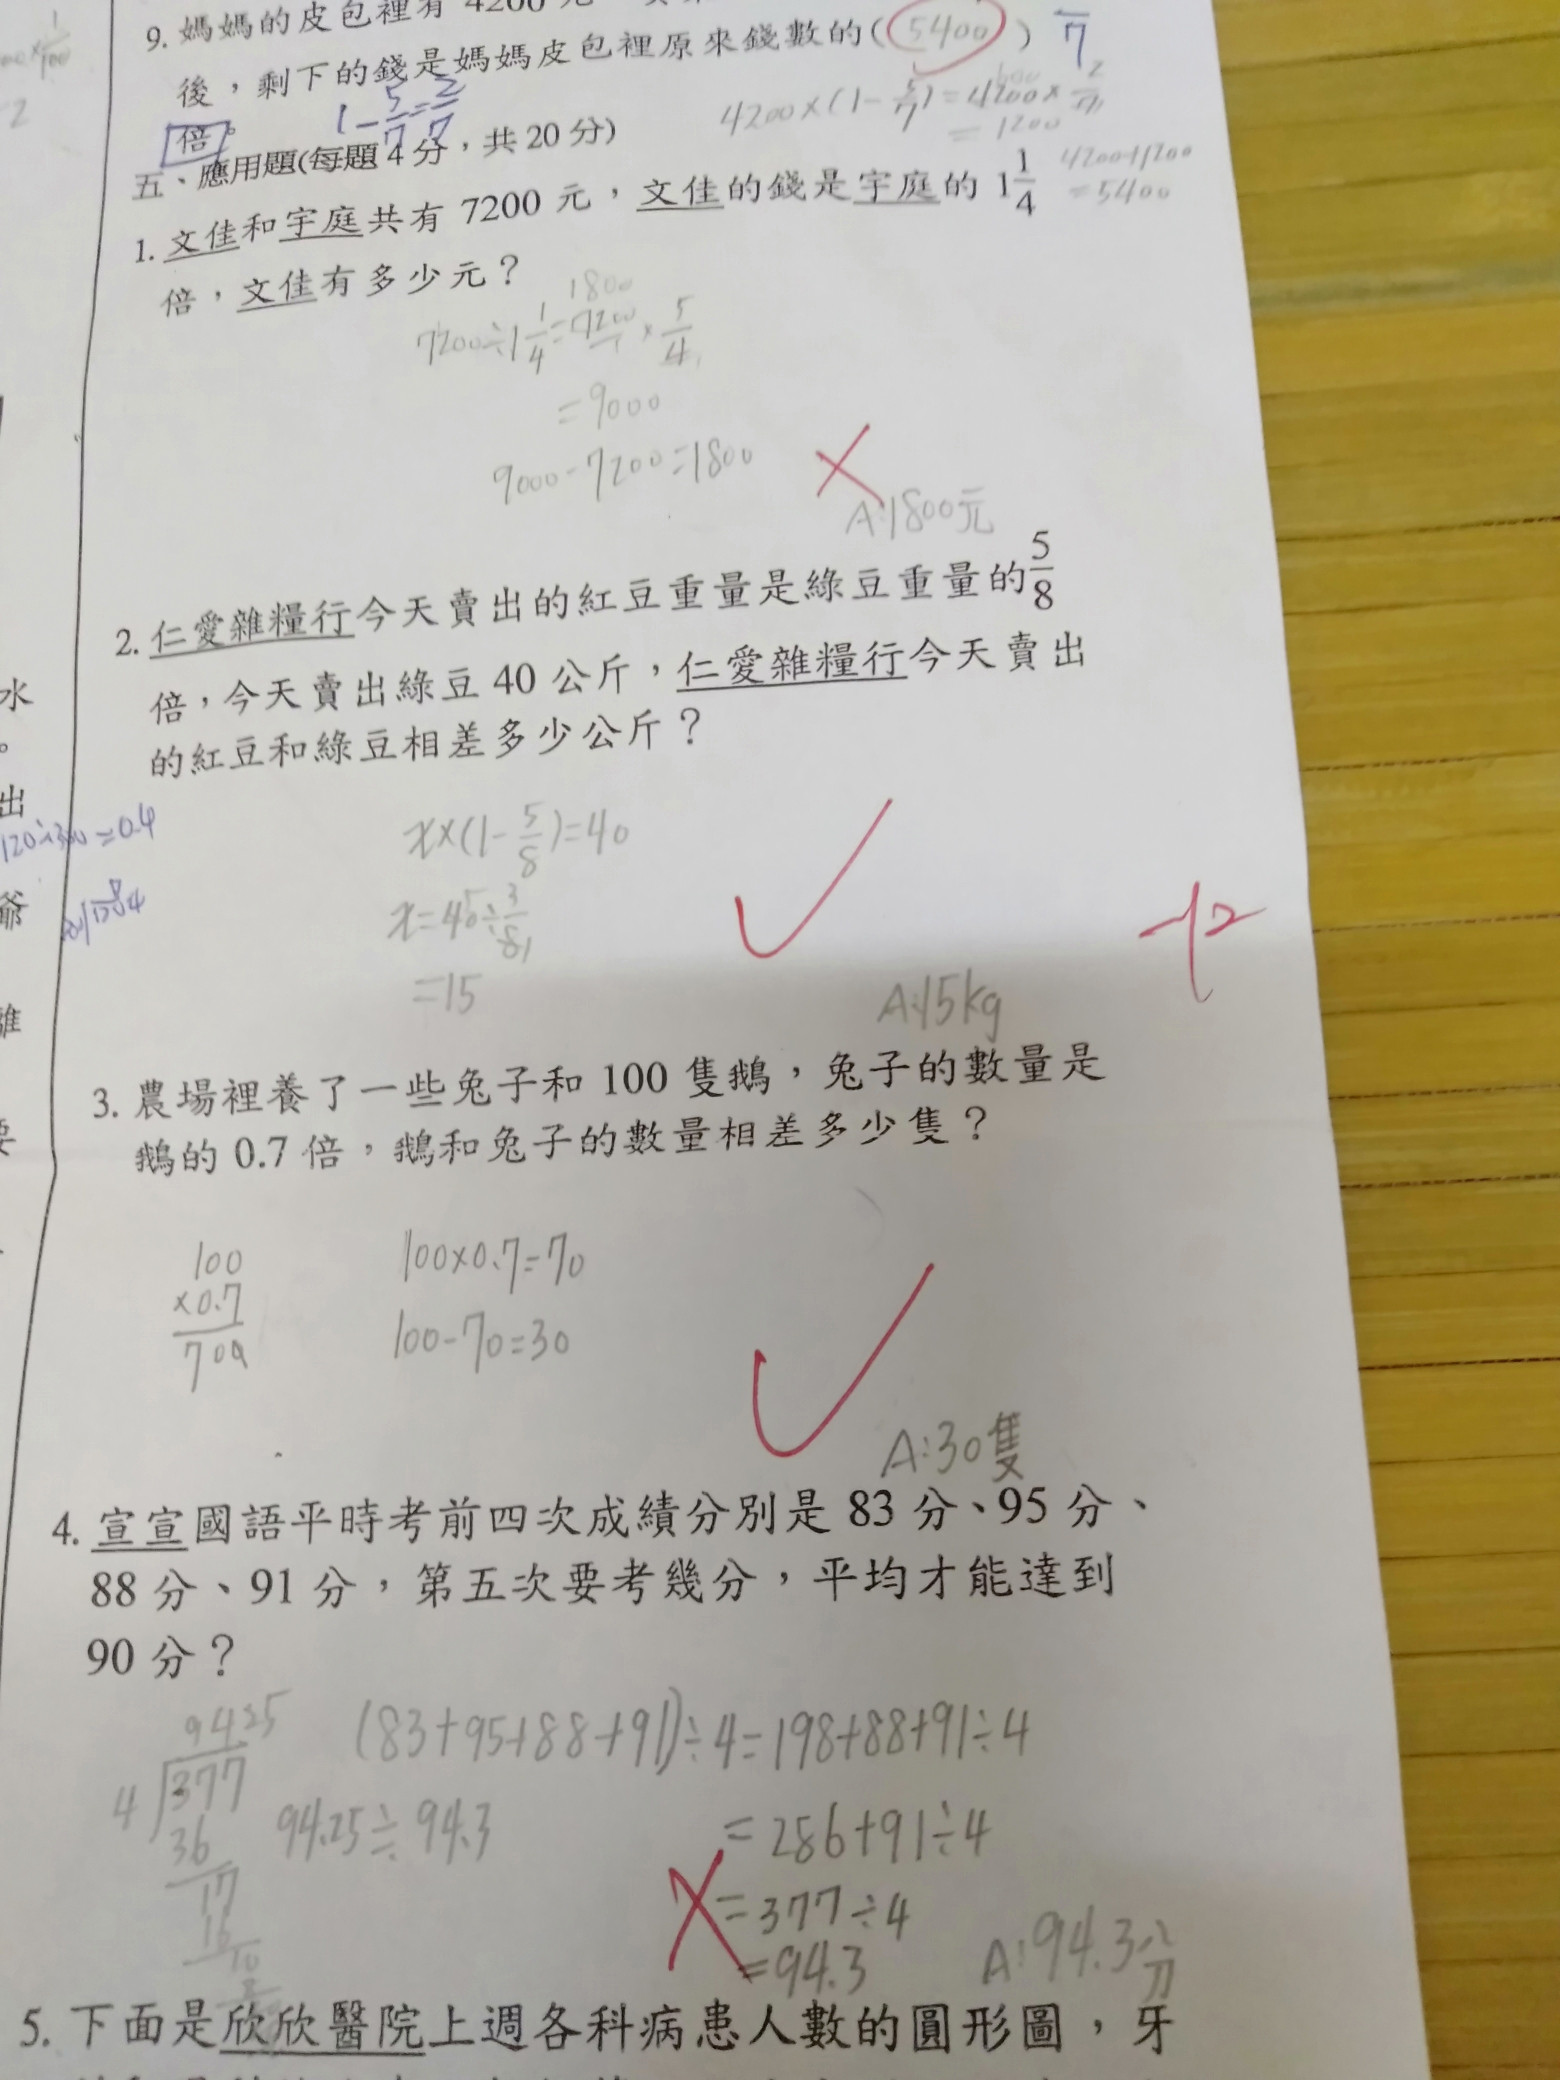 9. 媽媽的皮包裡有 4200 元
後，剩下的錢是媽媽皮包裡原來錢數的( 5400 ) 7
倍。 1-5/7=2/7
4200×(1-5/7)=4200×2/7
=1200
4200+1200
=5400
五、應用題(每題 4 分，共 20 分)
1. 文佳和宇庭共有 7200 元，文佳的錢是宇庭的 1 1/4
倍，文佳有多少元？
1800
7200÷1 1/4=7200/1×5/4
=9000
9000-7200=1800
A:1800元
2. 仁愛雜糧行今天賣出的紅豆重量是綠豆重量的 5/8
倍，今天賣出綠豆 40 公斤，仁愛雜糧行今天賣出
的紅豆和綠豆相差多少公斤？
x×(1-5/8)=40
x=40÷3/8
=15
A:15kg
水
出
120÷300=0.4
爺
-12
3. 農場裡養了一些兔子和 100 隻鵝，兔子的數量是
鵝的 0.7 倍，鵝和兔子的數量相差多少隻？
100
×0.7
700
100×0.7=70
100-70=30
A:30隻
4. 宣宣國語平時考前四次成績分別是 83 分、95 分、
88 分、91 分，第五次要考幾分，平均才能達到
90 分？
(83+95+88+91)÷4=198+88+91÷4
=286+91÷4
=377÷4
=94.3
9425
4 377
36
17
16
10
94.25≒94.3
A:94.3分
5. 下面是欣欣醫院上週各科病患人數的圓形圖，牙